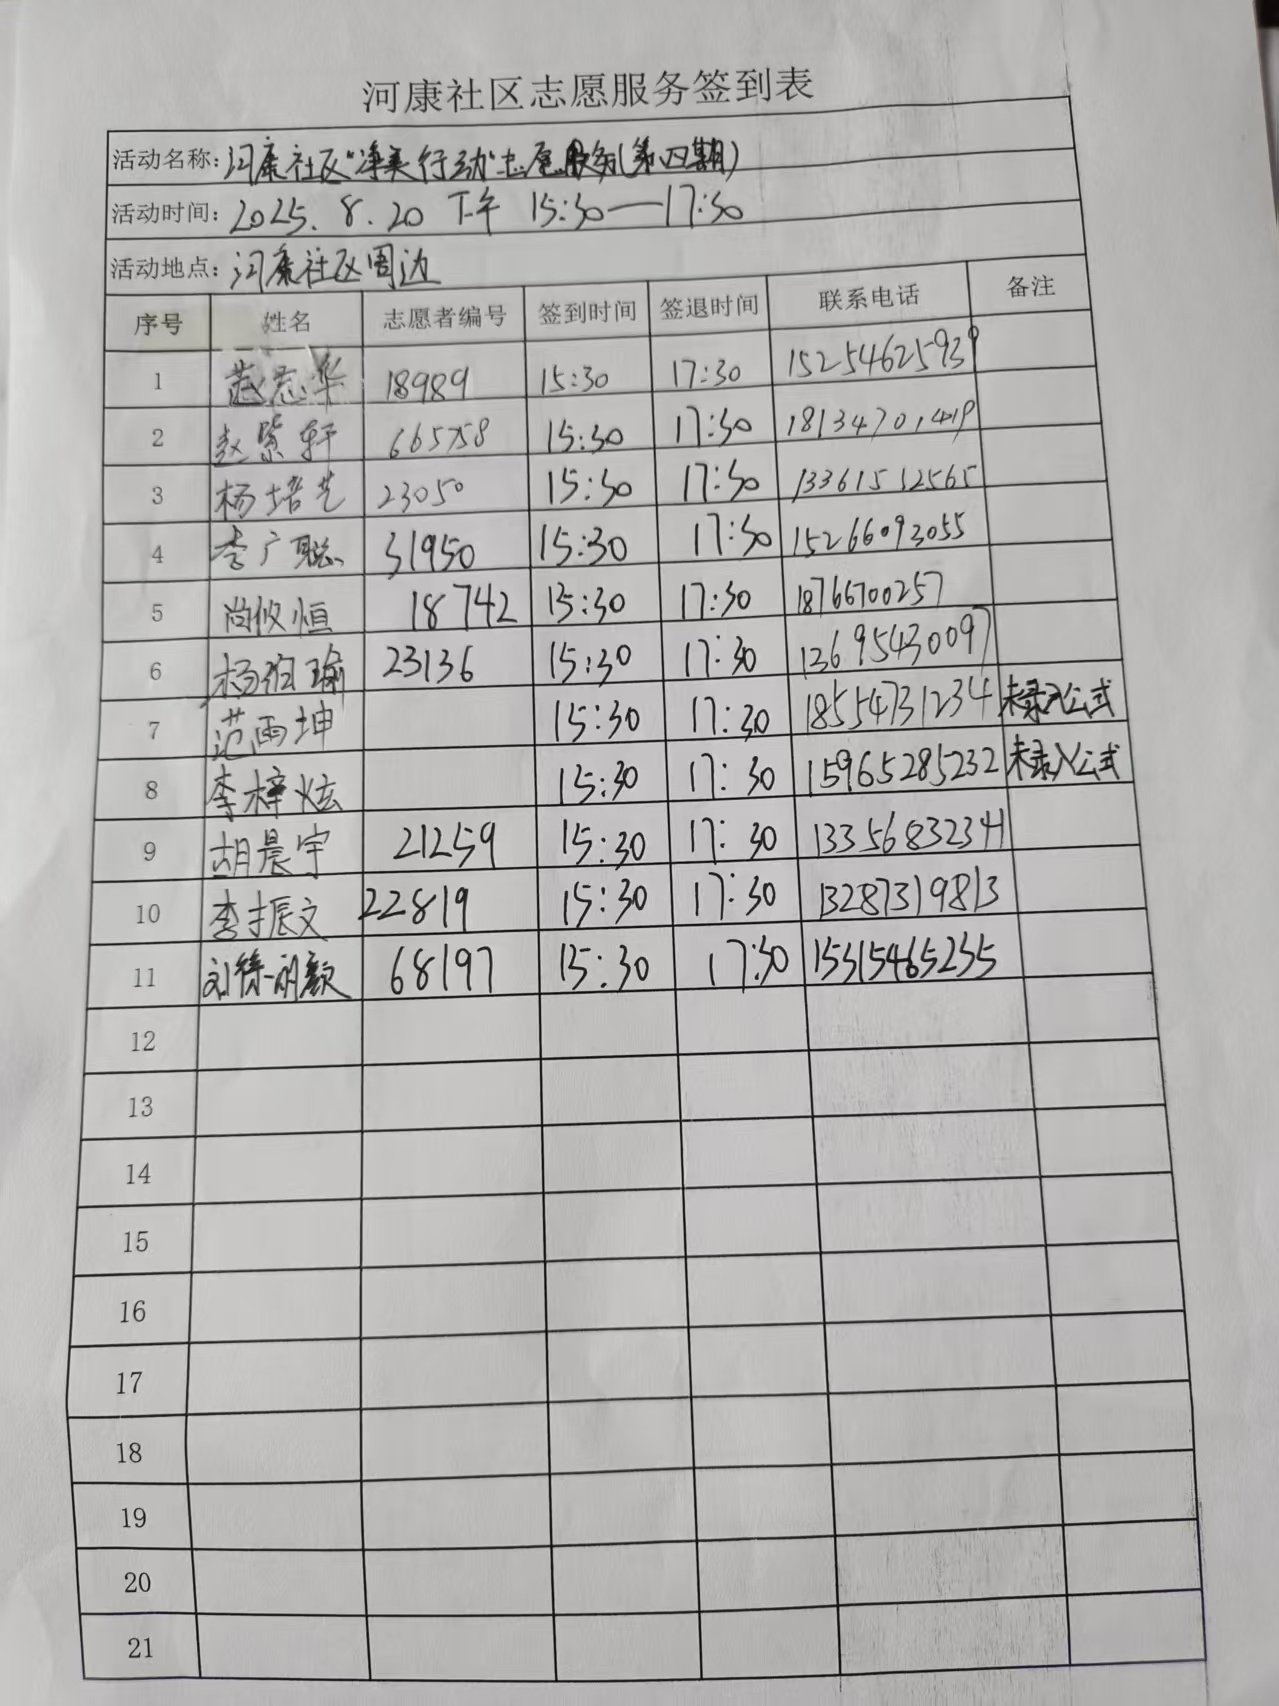 河康社区志愿服务签到表
活动名称：河康社区"净美行动"志愿服务(第四期)
活动时间：2025.8.20 下午 15:30—17:30
活动地点：河康社区周边
序号 姓名 志愿者编号 签到时间 签退时间 联系电话 备注
1 志华 18989 15:30 17:30 15254625939
2 赵紫轩 665758 15:30 17:30 18134701419
3 杨培艺 23050 15:30 17:30 13361512565
4 李广聪 31950 15:30 17:30 15266093055
5 尚攸恒 18742 15:30 17:30 18766700257
6 杨珀瑜 23136 15:30 17:30 13695430097
7 范雨坤 15:30 17:30 18554731234 未录入公式
8 李梓炫 15:30 17:30 15965285232 未录入公式
9 胡晨宇 21259 15:30 17:30 13356832341
10 李振文 22819 15:30 17:30 13287319813
11 刘徐一朗颜 68197 15:30 17:30 15315465235
12
13
14
15
16
17
18
19
20
21